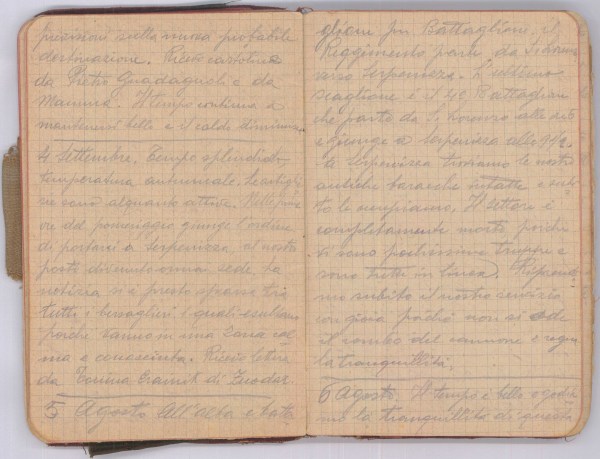 previsioni sulla nuova probabile
destinazione. Ricevo cartolina
da Pietro Guadagnoli e da
Mamma. Il tempo continua a
mantenersi bello e il caldo diminuisce
4 Settembre. Tempo splendido
temperatura autunnale. Le artiglie
rie sono alquanto attive. Nelle prime
ore del pomeriggio giunge l'ordine
di portarsi a Serpenizza al nostro
posto di
notizia si è presto sparsa tra
tutti i bersaglieri i quali esultano
perchè vanno in una zona cal
ma e conosciuta. Ricevo lettere
da
5 Agosto All'alba a batta
glione per Battaglione, il
Reggimento parte da
verso Serpenizza. L'ultimo
scaglione è il 40 Battaglione
che parte da S. Lorenzo alle sette
e giunge a Serpenizza alle
A Serpenizza troviamo le nostre
antiche baracche intatte e subi
to le rioccupiamo. Il settore è
completamente morto perchè
vi sono pochissime truppe e
sono tutte in linea. Riprendia
mo subito il nostro servizio
con gioia poichè non si ode
il rombo del cannone e regna
la tranquillità.
6 Agosto. Il tempo è bello e godia
mo la tranquillità di questo